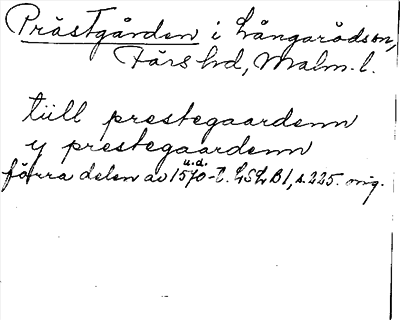 Prästgården i Långarödssn,
Färs hd, Malm. l.
tiill prestegaardenn
y prestegaardenn
u.d.
förra delen av 1570-t. LSLB1, s. 225. mig.